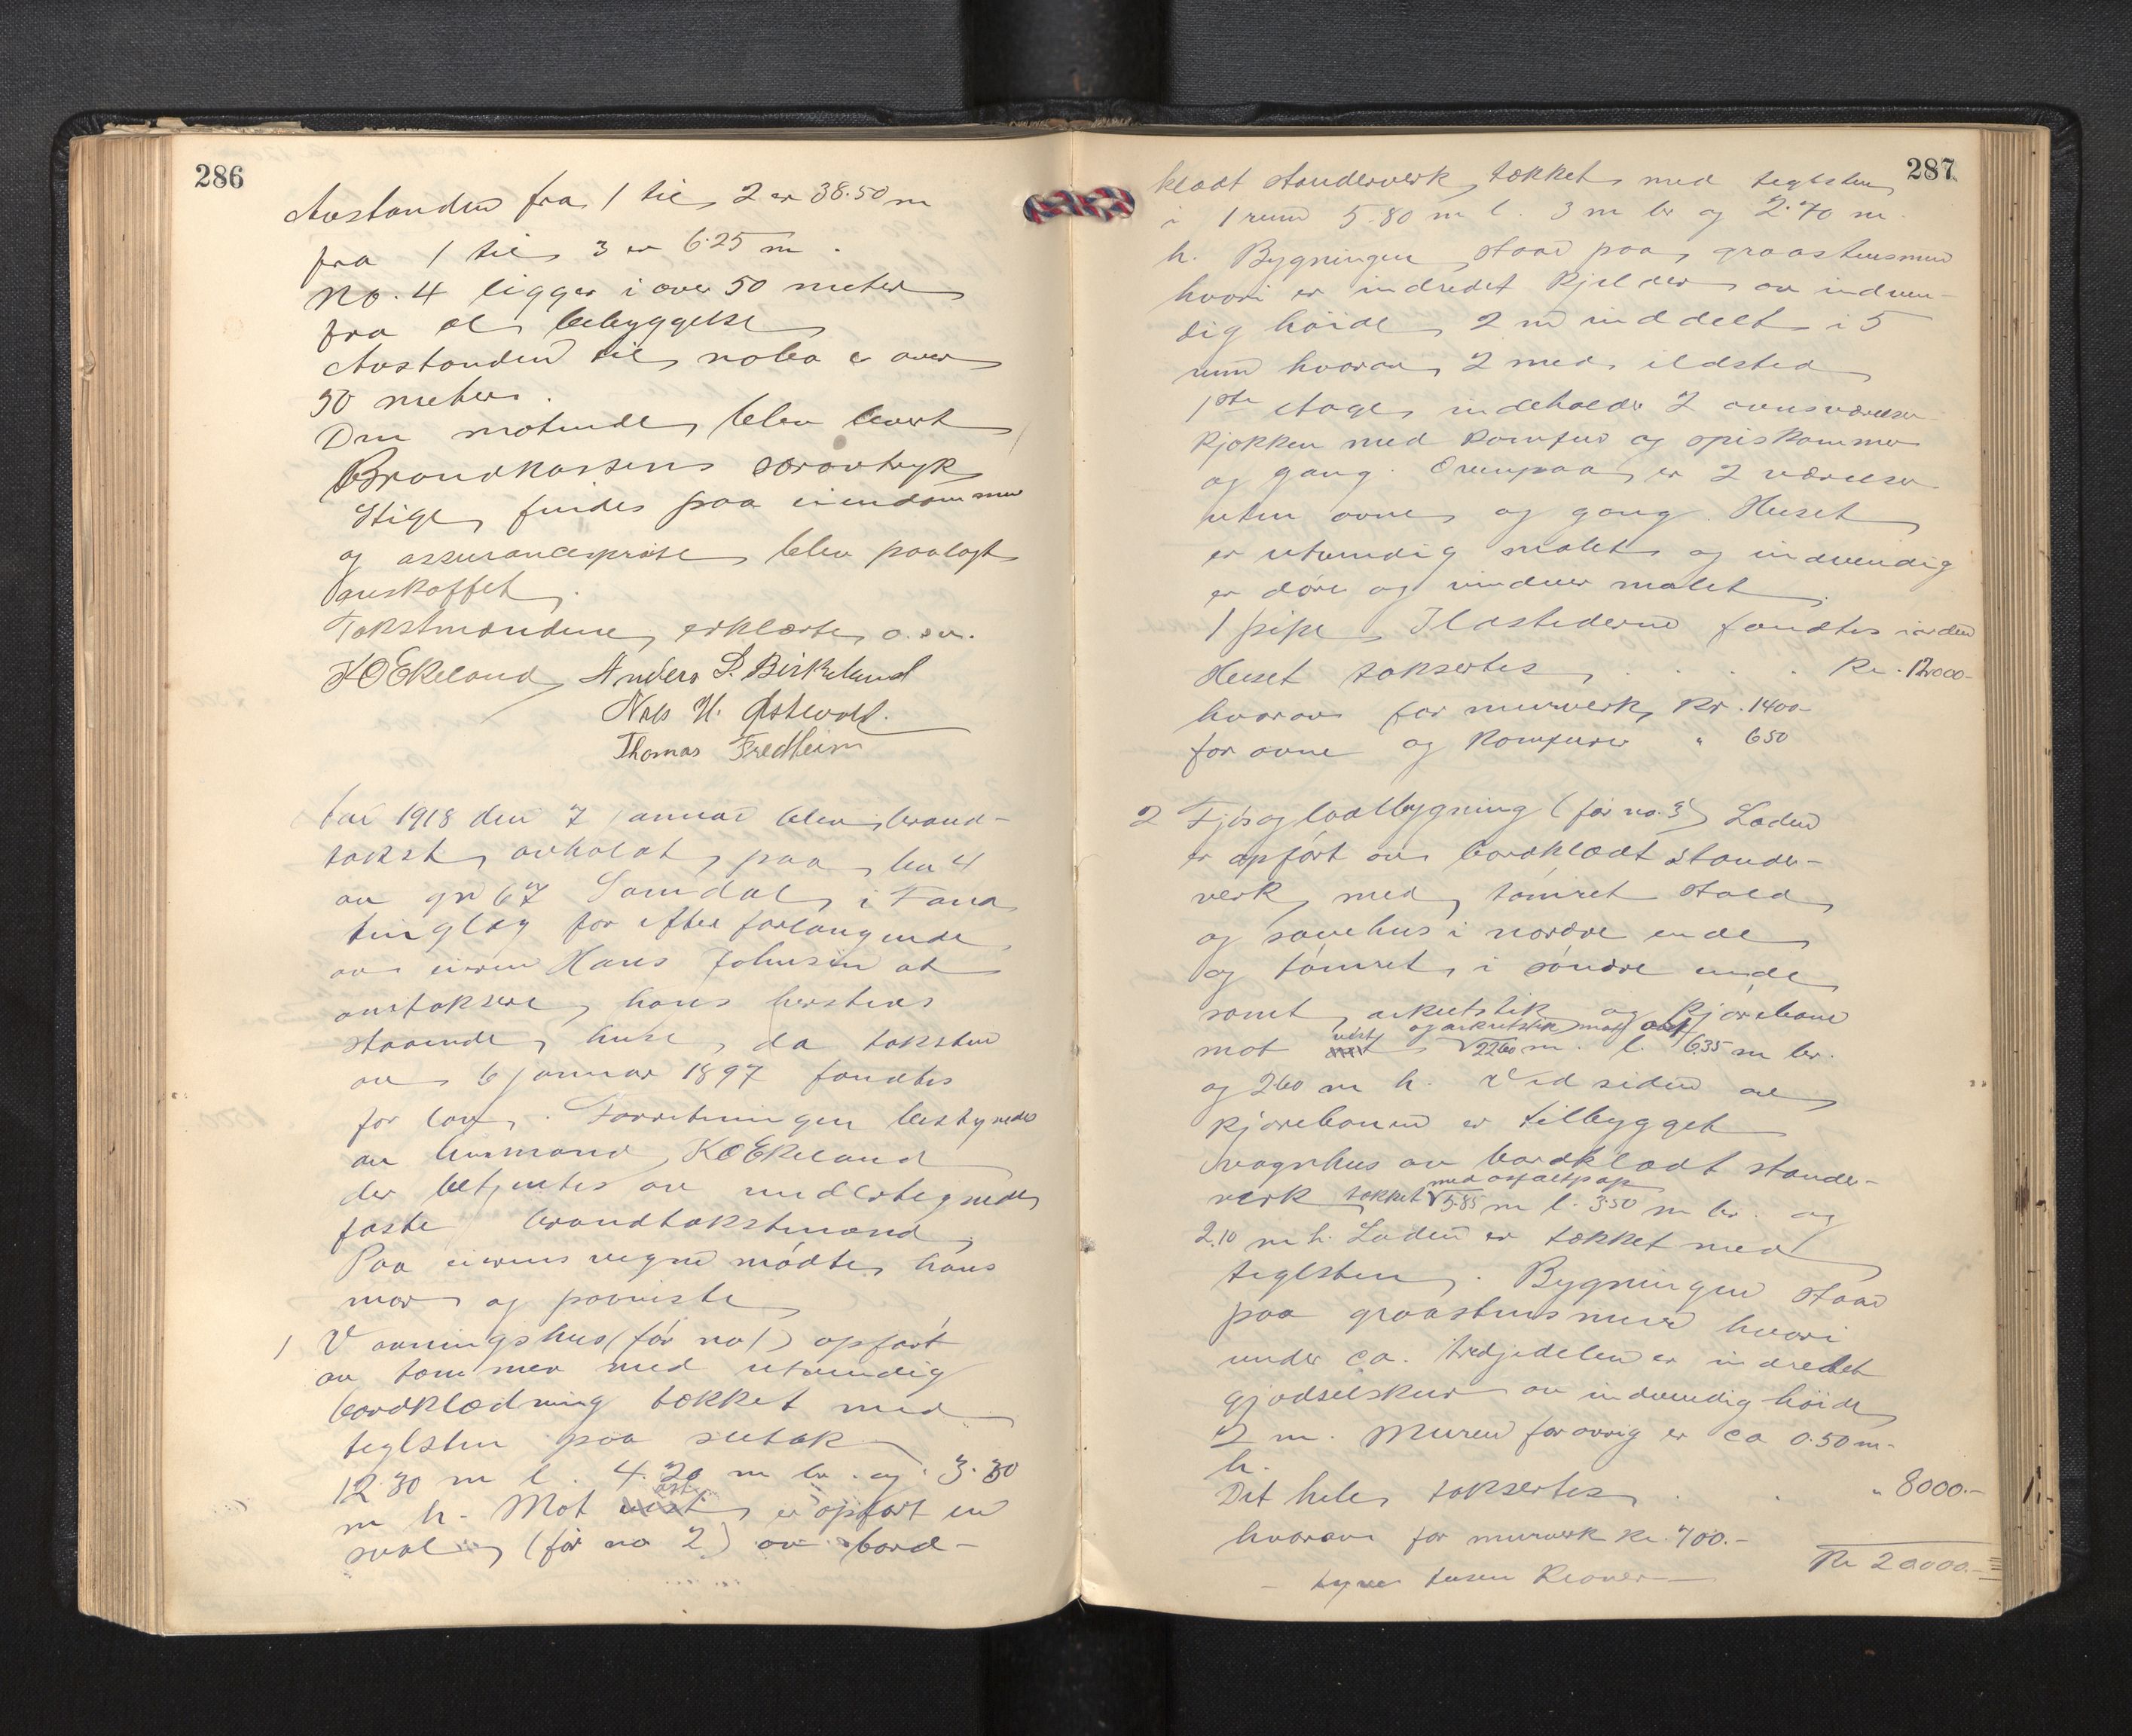 286
Avstanden fra 1 til 2 er 38.50 m
fra 1 til 3 er 6.25 m.
No. 4 ligger i over 50 meter
fra al bebyggelse
Avstanden til nabo er over
50 meter.
Den møtende blev levert
Brandkassens særavtryk
Stige findes paa eiendommen
og assurancesprøite blev paalagt
anskaffet.
Takstmændene erklærte o.s.v.
K O Ekeland Anders L. Birkeland
Nils H. Østevold.
Thomas Fredheim
Aar 1918 den 7 januar blev brand-
takst avholdt paa bn 4
av gn 67 Samdal i Fana
tinglag for efter forlangende
av eieren Hans Johnsen at
omtaksere hans herstens
staaende huse, da taksten
av 6 januar 1897 fandtes
for lav. Forretningen bestyredes
av lensmand K O Ekeland
der betjentes av undertegnede
faste brandtakstmænd
Paa eierens vegne mødte hans
mor og paaviste
1 Vaaningshus (før no 1) opført
av tømmer med utvendig
bordklædning tækket med
teglsten paa sutak
12.30 m l. 4.20 m br. og 3.30
m h. Mot øst er opført en
sval (før no 2) av bord-
287
klædt standerverk tækket med teglsten
i 1 rum 5.80 m l. 3 m br og 2.70 m.
h. Bygningen staar paa graastensmur
hvori er indredet kjelder av indven-
dig høide 2 m inddelt i 5
rum hvorav 2 med ildsted
1ste etage indeholder 2 ovnsværelser
kjøkken med komfur og spiskammer
og gang. Ovenpaa er 2 værelser
uten ovne og gang. Huset
er utvendig malet og indvendig
er døre og vinduer malet
1 pipe. Ildstederne fandtes i orden
Huset taksertes . . . . Kr. 12000-
hvorav for murverk Kr. 1400-
for ovne og komfurer " 650
2 Fjøs og ladebygning (før no. 3) Laden
er opført av bordklædt stander-
verk med tømret stald
og sauehus i nordre ende
og tømret i søndre ende
samt arkutstik og kjørebane
mot vest og arkutstik mot øst 22.60 m. l. 6.35 m br.
og 2.60 m h. Ved siden av
kjørebanen er tilbygget
vognhus av bordklædt stander-
verk tækket med asfaltpap 5.85 m l. 3.50 m br. og
2.10 m h. Laden er tækket med
teglsten. Bygningen staar
paa graastensmur hvori
under ca. tredjedelen er indredet
gjødselskur av indvendig høide
2 m. Muren forøvrig er ca 0.50 m.
h.
Det hele taksertes . . " 8000.-
hvorav for murverk kr. 700.-
Kr 20000.-
- tyve tusen Kroner -